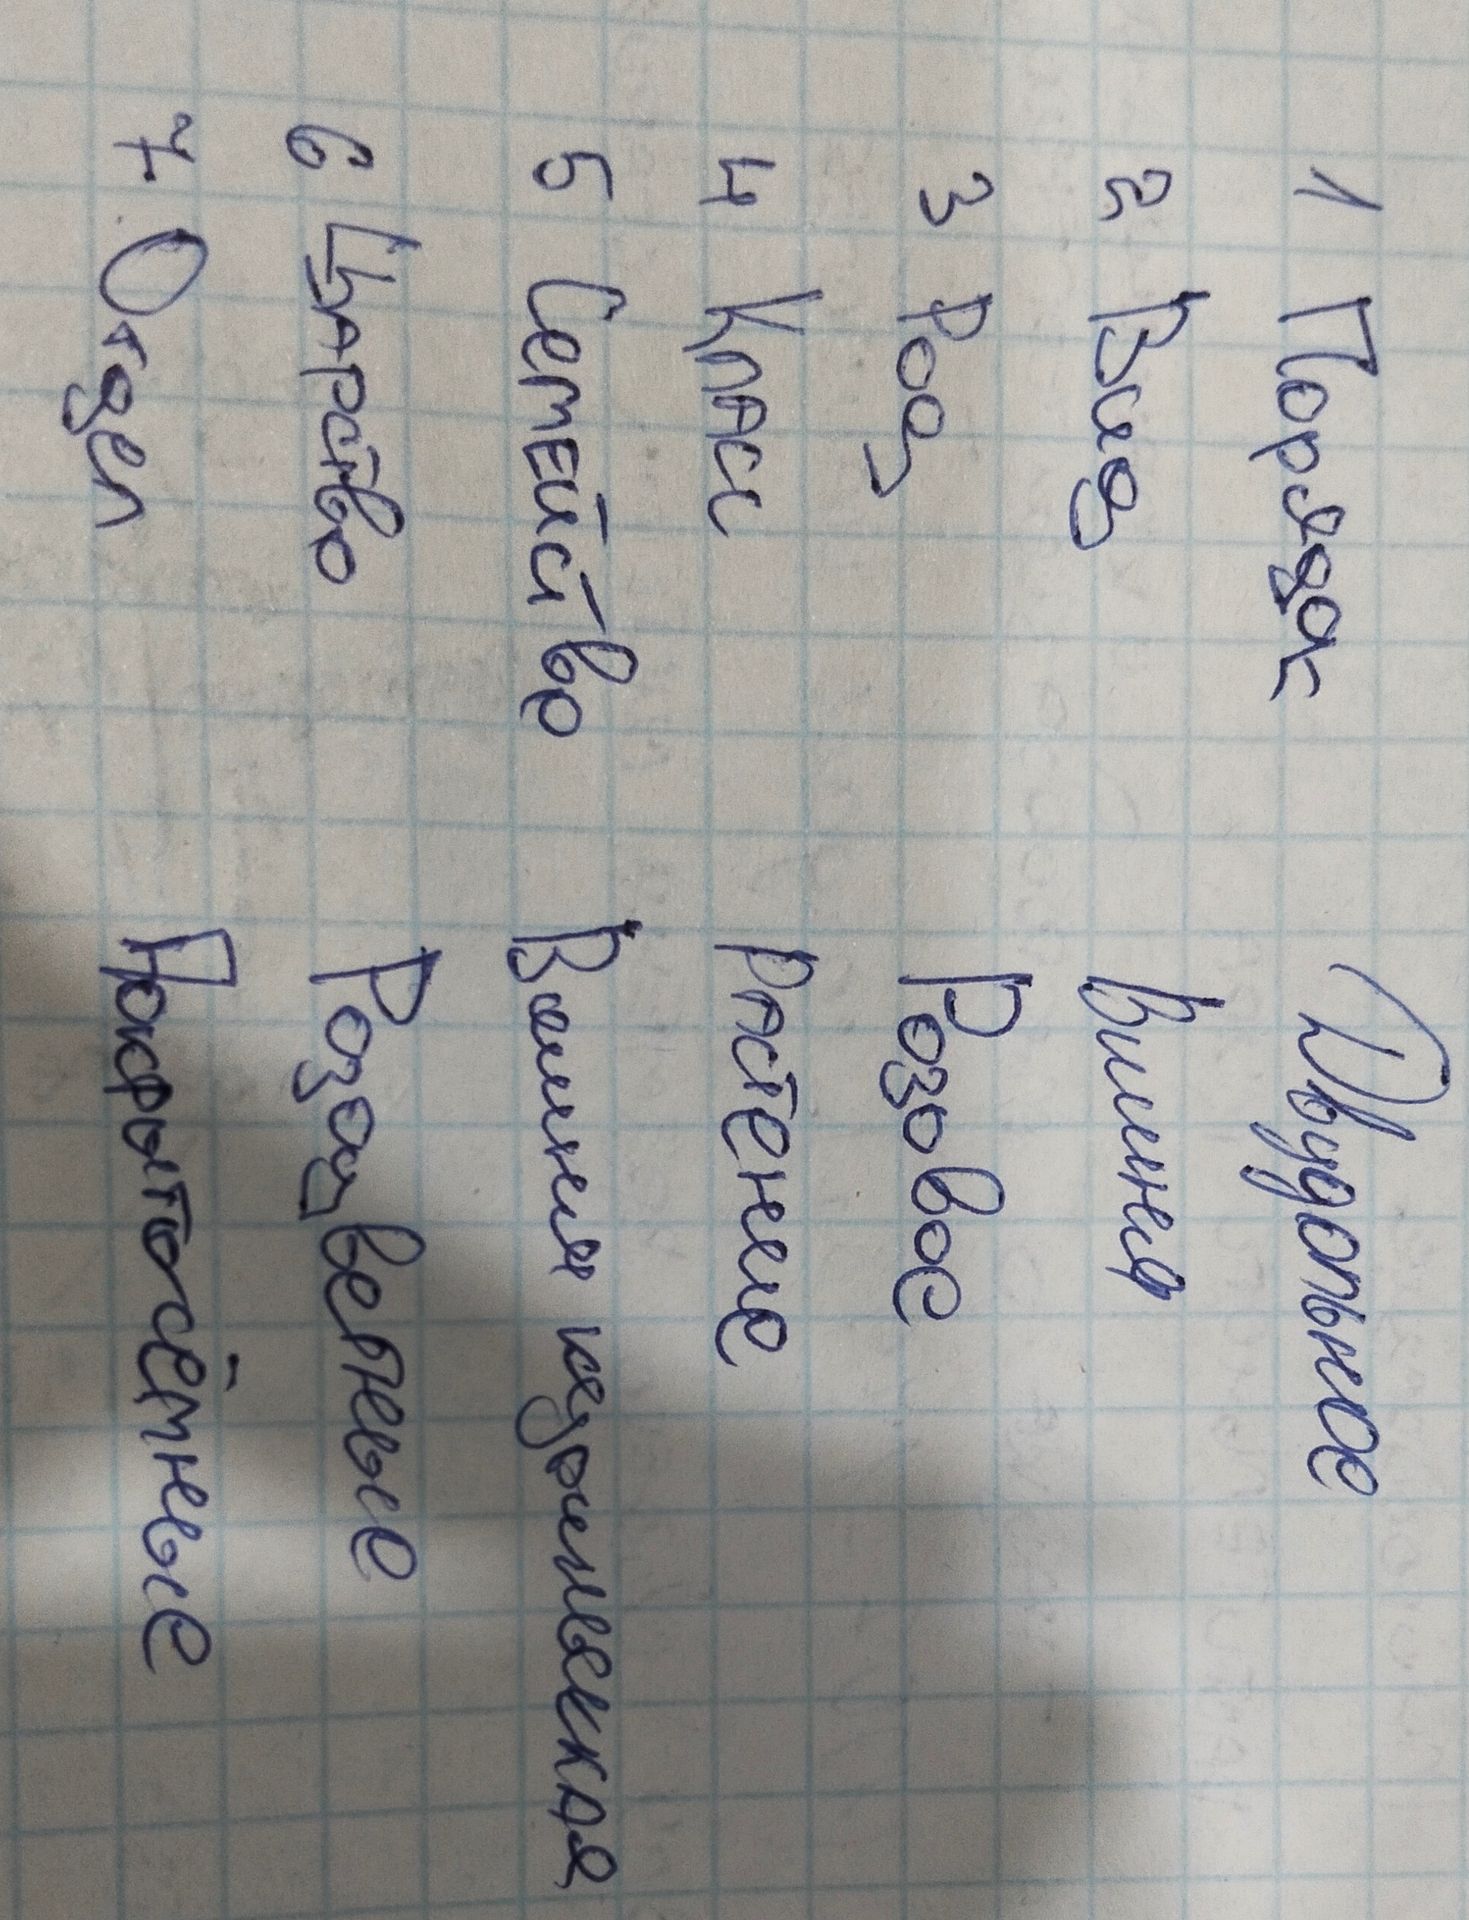 1 Порядок Двудольное
2 Вид Вишня
3 Род Розовое
4 Класс Растение
5 Семейство Вишня куринывская
6 Царство Розацветные
7 Отдел Покрытосёмные